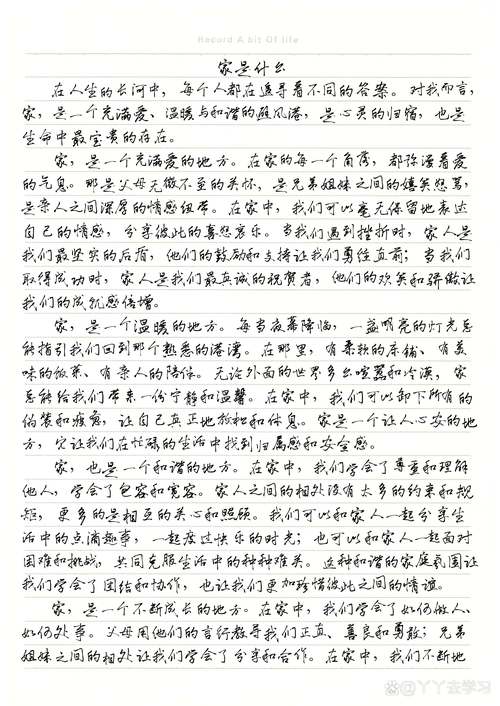 Record A bit Of life
家是什么
在人生的长河中，每个人都在追寻着不同的答案。对我而言，
家，是一个充满爱、温暖与和谐的避风港，是心灵的归宿，也是
生命中最宝贵的存在。
家，是一个充满爱的地方。在家的每一个角落，都弥漫着爱
的气息。那是父母无微不至的关怀，是兄弟姐妹之间的嬉笑怒骂，
是亲人之间深厚的情感纽带。在家中，我们可以毫无保留地表达
自己的情感，分享彼此的喜怒哀乐。当我们遇到挫折时，家人是
我们最坚实的后盾，他们的鼓励和支持让我们勇往直前；当我们
取得成功时，家人是我们最真诚的祝贺者，他们的欢笑和骄傲让
我们的成就感倍增。
家，是一个温暖的地方。每当夜幕降临，一盏明亮的灯光总
能指引我们回到那个熟悉的港湾。在那里，有柔软的床铺、有美
味的饭菜、有亲人的陪伴。无论外面的世界多么喧嚣和冷漠，家
总能给我们带来一份宁静和温馨。在家中，我们可以卸下所有的
伪装和疲惫，让自己真正地放松和休息。家是一个让人心安的地
方，它让我们在忙碌的生活中找到归属感和安全感。
家，也是一个和谐的地方。在家中，我们学会了尊重和理解
他人，学会了包容和宽容。家人之间的相处没有太多的约束和规
矩，更多的是相互的关心和照顾。我们可以和家人一起分享生
活中的点滴趣事，一起度过快乐的时光；也可以和家人一起面对
困难和挑战，共同克服生活中的种种难关。这种和谐的家庭氛围让
我们学会了团结和协作，也让我们更加珍惜彼此之间的情谊。
家，是一个不断成长的地方。在家中，我们学会了如何做人、
如何处事。父母用他们的言行教导我们正直、善良和勇敢；兄弟
姐妹之间的相处让我们学会了分享和合作。在家中，我们不断地
@丫丫去学习